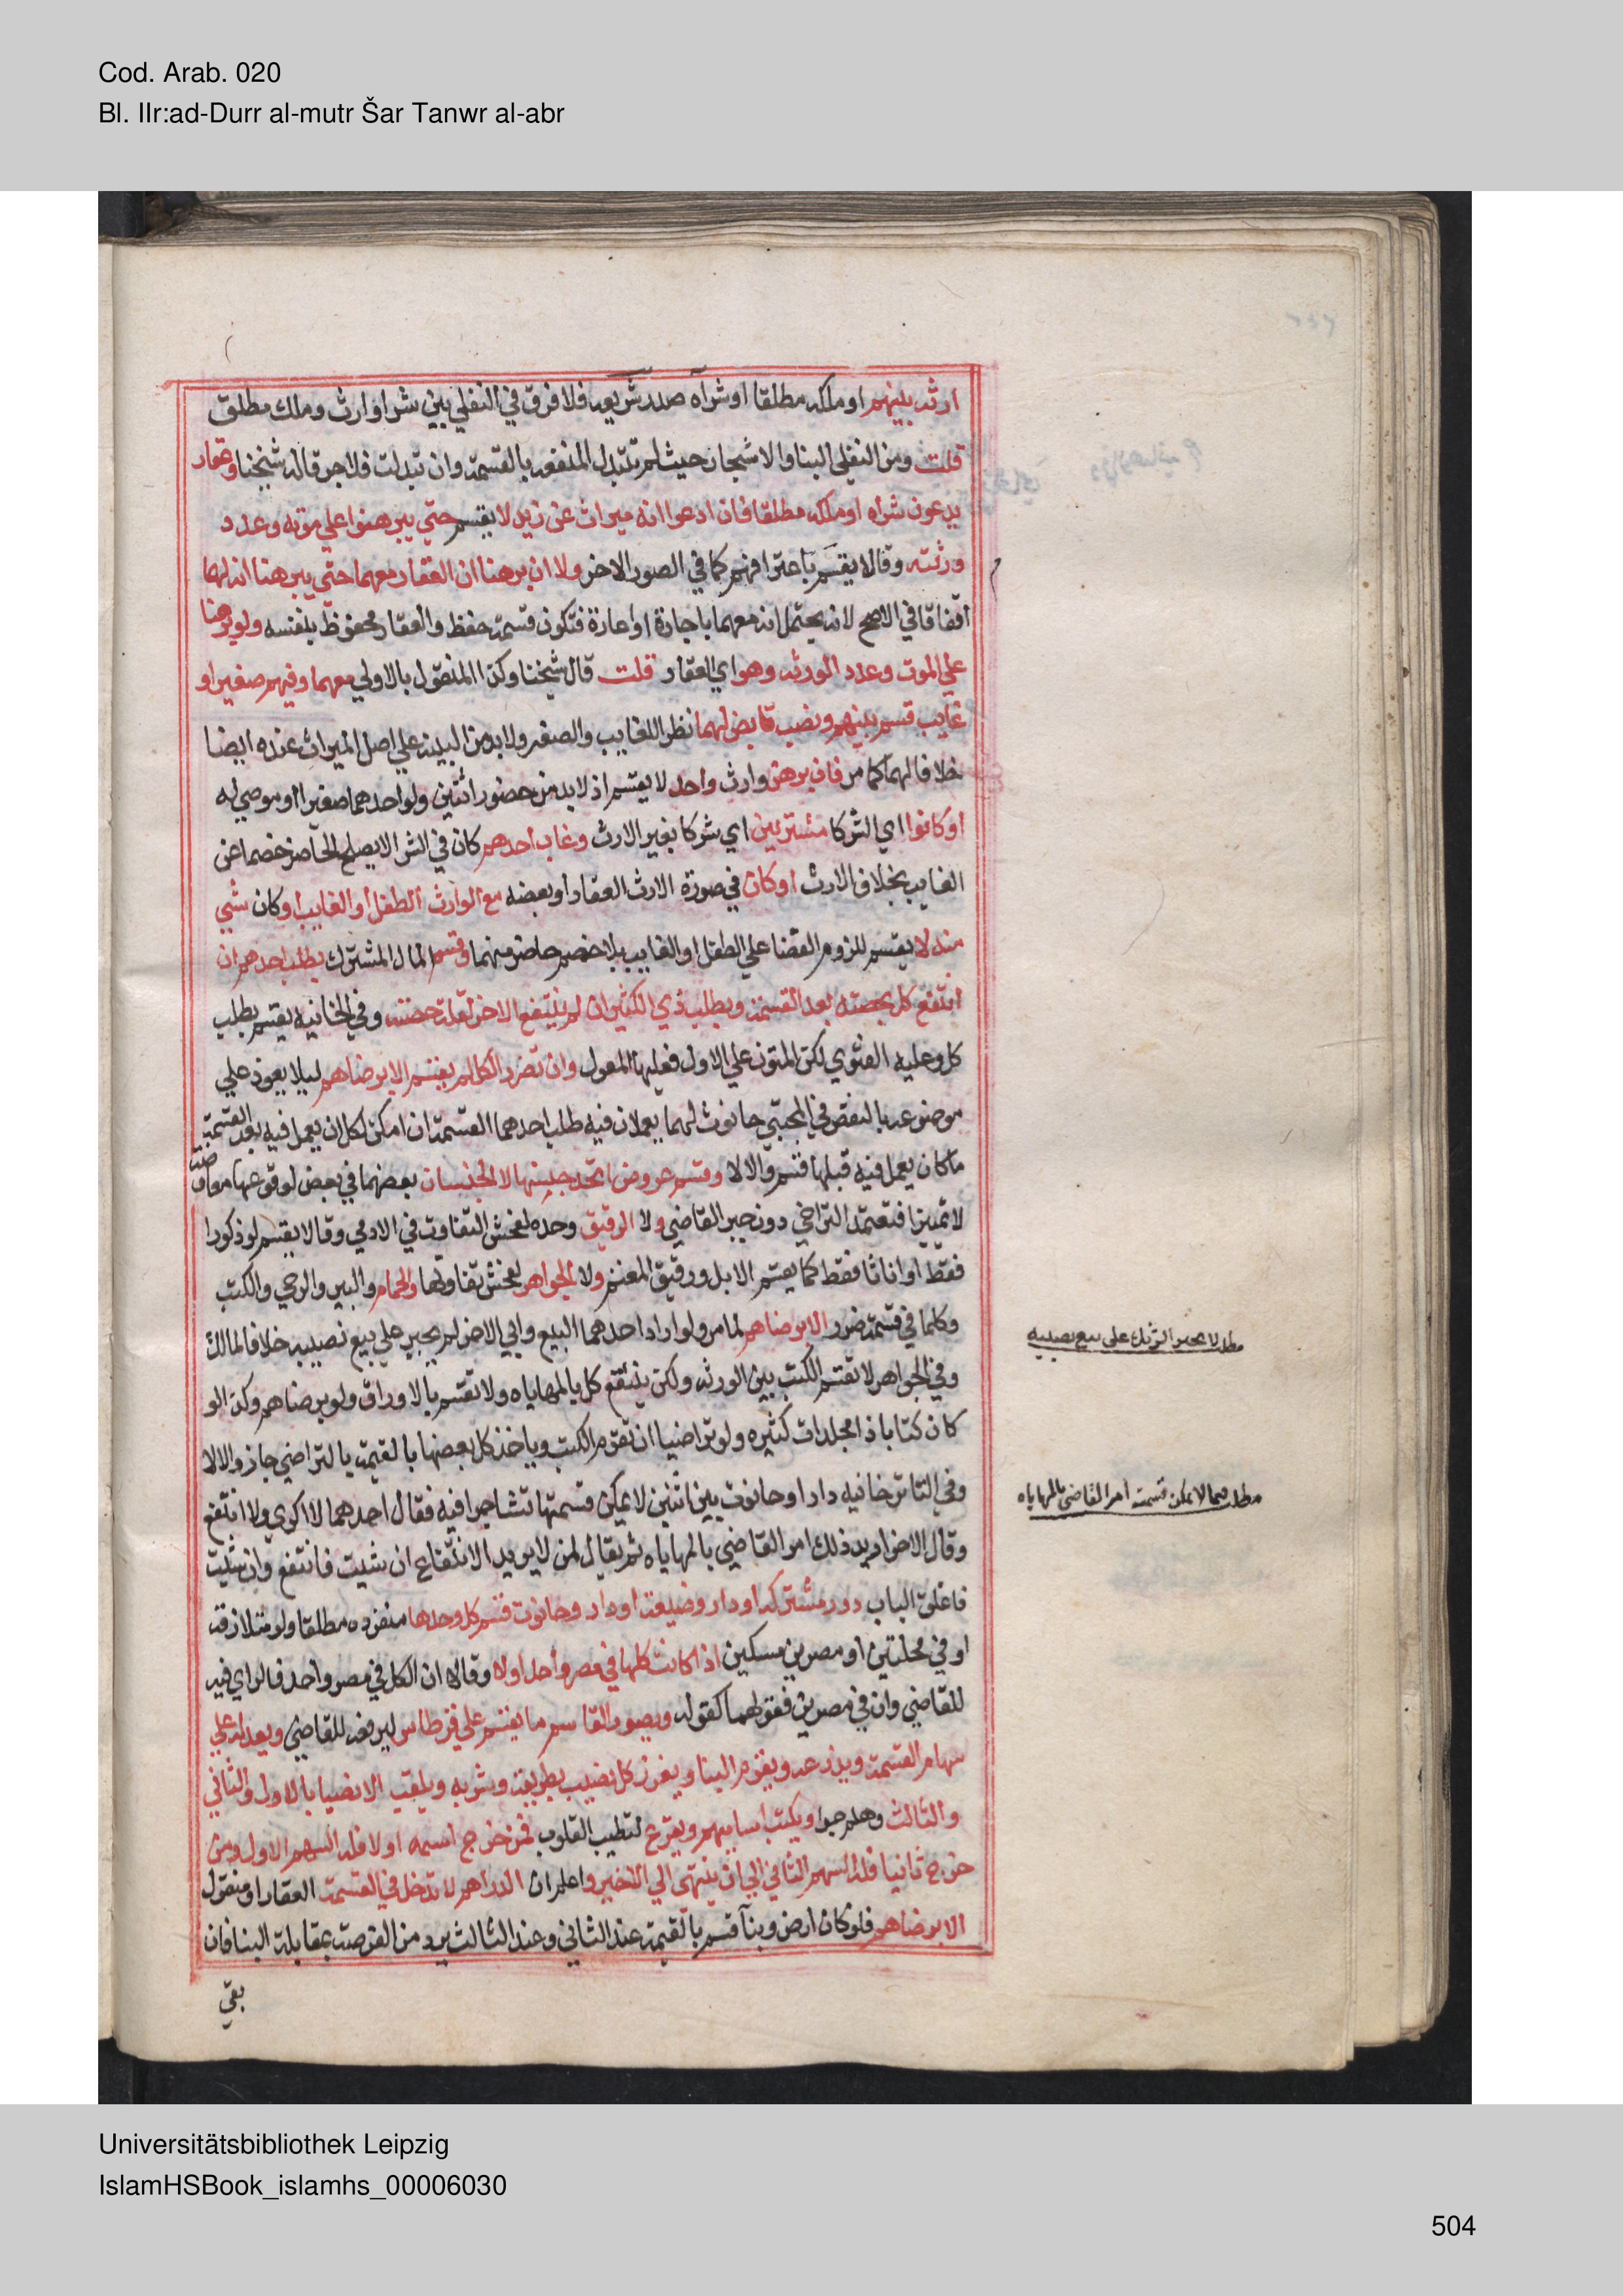 Cod. Arab. 020
Bl. IIr:ad-Durr al-mutr Šar Tanwr al-abr
ارثه بينهم او ملكه مطلقا او شرآه صدرشريعه فلا فرق في النقلي بين شرا وارث وملك مطلق
قلت ومن النقلي البنا والاشجار حيث لم تتبدل المنفعه بالقسمة وان تبدلت فلا جبر قاله شيخنا وعقار
يدعون شراه او ملكه مطلقا فان ادعوا انه ميراث عن زيد لا يقسم حتي يبرهنوا علي موته وعدد
ورثته وقالا يقسم باعترافهم كما في الصور الاخر ولا ان برهنا ان العقار معهما حتي يبرهنا انه لهما
اتفاقا في الاصح لانه يحتمل انه معهما باجارة او اعارة فتكون قسمة حفظ والعقار محفوظ بنفسه ولو برهنا
علي الموت وعدد الورثه وهو اي العقار قلت قال شيخنا وكذا المنقول بالاولي معهما وفيهم صغير او
غايب قسم بينهم ونصب قابض لهما نظرا للغايب والصغير ولا بد من البينه علي اصل الميراث عنده ايضا
خلافا لهما كما مر فان برهن وارث واحد لا يقسم اذ لا بد من حضور اثنين ولو احدهما صغيرا او موصي له
او كانوا اي الشركا مشتريين اي شركا بغير الارث وغاب احدهم كان في الشرا لا يصلح الحاضر خصما عن
الغايب بخلاف الارث او كان في صورة الارث العقار او بعضه مع الوارث الطفل او الغايب او كان شي
منه لا يقسم للزوم القضا علي الطفل او الغايب بلا خصم حاضر منهما وقسم المال المشترك بطلب احدهم ان
انتفع كل بحصته بعد القسمة وبطلب ذي الكثير ان لم ينتفع الاخر لقلة حصته وفي الخانيه يقسم بطلب
كل وعليه الفتوي لكن المتون علي الاول فعليها المعول وان تضرر الكل لم يقسم الا برضاهم ليلا يعود علي
موضوعه بالنقض في المجتبي حانوت لهما يعملان فيه طلب احدهما القسمة ان امكن لكل ان يعمل فيه بعد القسمة
ما كان يعمل فيه قبلها قسم والا لا وقسم عروض اتحد جنسها لا الجنسان بعضهما في بعض لوقوعها معاوضة
لا تمييزا فتعتمد التراضي دون جبر القاضي ولا الرقيق وحده لفحش التفاوت في الادمي وقالا يقسم لو ذكورا
فقط او اناثا فقط كما يقسم الابل ورقيق المغنم ولا الجواهر لفحش تفاوتها والحمام والبير والرحي والكتب
وكلما في قسمته ضرر الا برضاهم لما مر ولو اراد احدهما البيع وابي الاخر لم يجبر علي بيع نصيبه خلافا لمالك
وفي الجواهر لا تقسم الكتب بين الورثه ولكن ينتفع كل بالمهاياه ولا تقسم بالاوراق ولو برضاهم وكذا لو
كان كتابا ذا مجلدات كثيره ولو تراضيا ان تقوم الكتب وياخذ كل بعضها بالقيمة بالتراضي جاز والا لا
وفي التاترخانيه دار او حانوت بين اثنين لا يمكن قسمتها تشاجرا فيه فقال احدهما لا اكري ولا انتفع
وقال الاخر اريد ذلك امر القاضي بالمهاياه ثم يقال لمن لا يريد الانتفاع ان شيت فانتفع وان شيت
فاغلق الباب دور مشتركه او دار وضيعة او دار وحانوت قسم كل وحدها منفرده مطلقا ولو متلازقة
او في محلتين او مصرين مسكين اذا كانت كلها في مصر واحد او لا وقالا ان الكل في مصر واحد فالراي فيه
للقاضي وان في مصرين فقولهما كقوله ويصور القاسم ما يقسم علي قرطاس ليرفعه للقاضي ويعدله علي
سهام القسمة ويذرعه ويقوم البنا ويفرز كل نصيب بطريقه وشربه ويلقب الانصبا بالاول والثاني
والثالث وهلم جرا ويكتب اساميهم ويقرع لتطيب القلوب فمن خرج اسمه اولا فله السهم الاول ومن
خرج ثانيا فله السهم الثاني الي ان ينتهي الي الاخير واعلم ان الدراهم لا تدخل في القسمة العقار او منقول
الا برضاهم فلو كان ارض وبنآ قسم بالقيمة عند الثاني وعند الثالث يرد من العرصة بمقابلة البنا فان
بقي
مطلب لا يجبر الشريك على بيع نصيبه
مطلب فيما لا يمكن قسمته امر القاضي بالمهاياه
Universitätsbibliothek Leipzig
IslamHSBook_islamhs_00006030
504